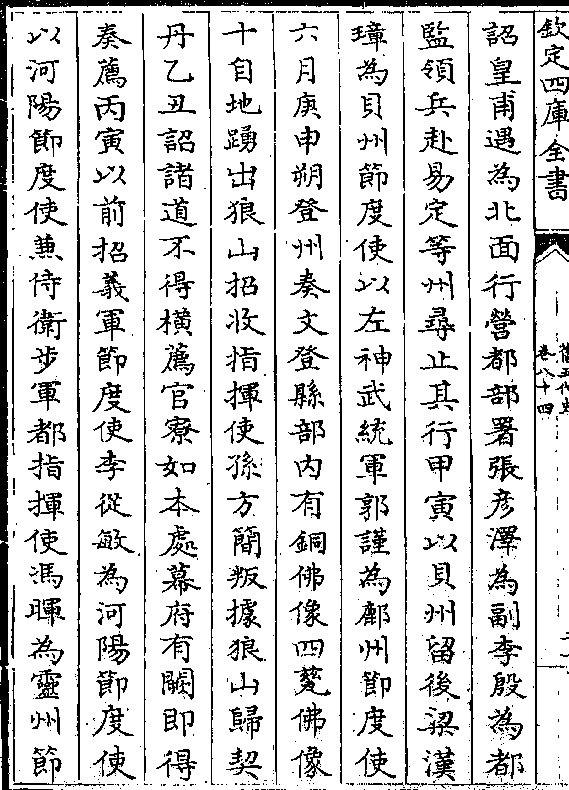 欽定四庫全書
舊五代史
卷八十四
詔皇甫遇為北面行營都部署張彥澤為副李殷為都
監領兵赴易定等州尋止其行甲寅以貝州留後梁漢
璋為貝州節度使以左神武統軍郭謹為鄜州節度使
六月庚申朔登州奏文登縣部内有銅佛像四甆佛像
十自地踴出狼山招收指揮使孫方簡叛據狼山歸契
丹乙丑詔諸道不得橫薦官寮如本處幕府有闕即得
奏薦丙寅以前招義軍節度使李從敏為河陽節度使
以河陽節度使兼侍衛步軍都指揮使馮暉為靈州節